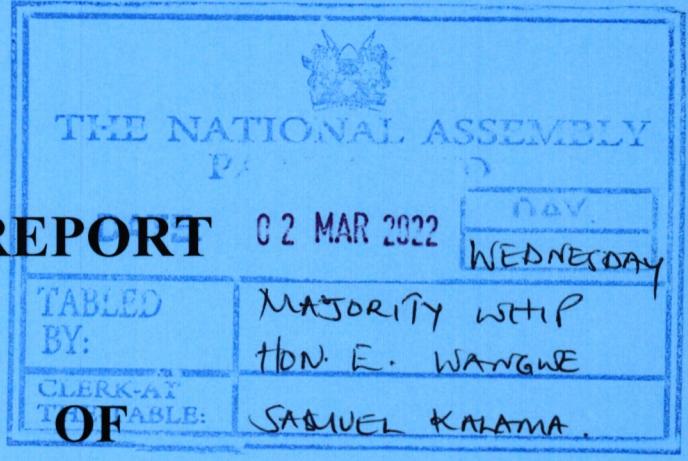 THE NATIONAL ASSEMBLY
REPORT
02 MAR 2022
DAY.
WEDNESDAY
TABLED
BY:
MAJORITY WHIP
HON. E. WANGWE
CLERK-AT
THE TABLE:
SAMUEL KALAMA.
OF